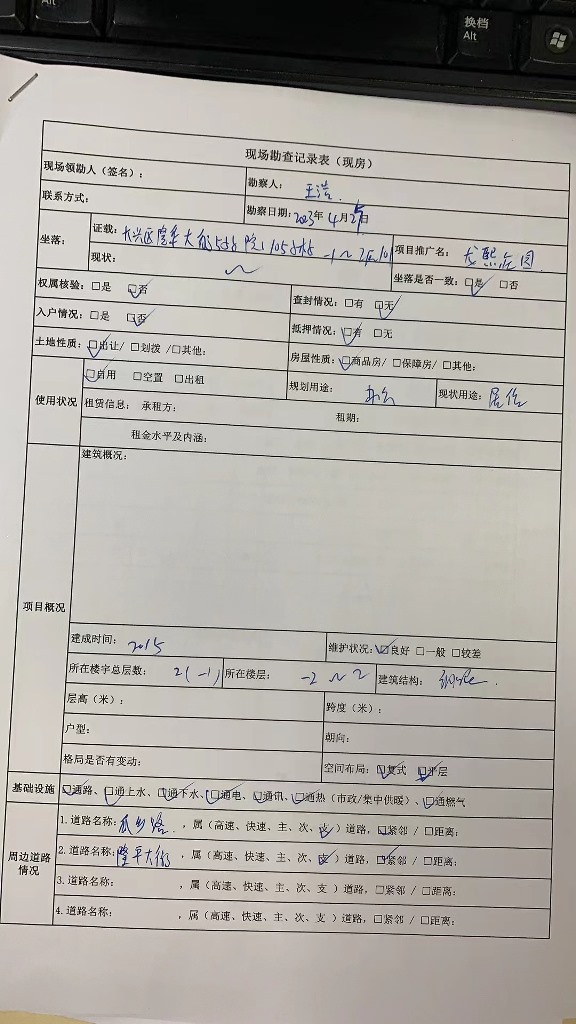 Alt
换档
Alt
现场勘查记录表（现房）
现场领勘人（签名）：
勘察人： 王浩
联系方式：
勘察日期：2023年4月 日
坐落：
证载：大兴区隆平大街 院 -1~2层101
项目推广名：龙熙 园
现状： ~
坐落是否一致：☑是 □否
权属核验：□是 ☑否
查封情况：□有 ☑无
入户情况：□是 ☑否
抵押情况：☑有 □无
土地性质：☑出让/ □划拨 /□其他：
房屋性质：☑商品房/ □保障房/ □其他：
使用状况
☑自用 □空置 □出租
规划用途： 办公
现状用途：居住
租赁信息： 承租方： 租期：
租金水平及内涵：
项目概况
建筑概况：
建成时间： 2015
维护状况：☑良好 □一般 □较差
所在楼宇总层数： 2(-1)
所在楼层： -2 ~ 2
建筑结构：
层高（米）：
跨度（米）：
户型：
朝向：
格局是否有变动：
空间布局：☑复式 ☑平层
基础设施
☑通路、☑通上水、☑通下水、☑通电、☑通讯、☑通热（市政/集中供暖）、☑通燃气
周边道路情况
1. 道路名称：瓜乡路 ，属（高速、快速、主、次、支☑）道路，☑紧邻 / □距离：
2. 道路名称：隆平大街 ，属（高速、快速、主、次、支☑）道路，☑紧邻 / □距离：
3. 道路名称： ，属（高速、快速、主、次、支 ）道路，□紧邻 / □距离：
4. 道路名称： ，属（高速、快速、主、次、支 ）道路，□紧邻 / □距离：